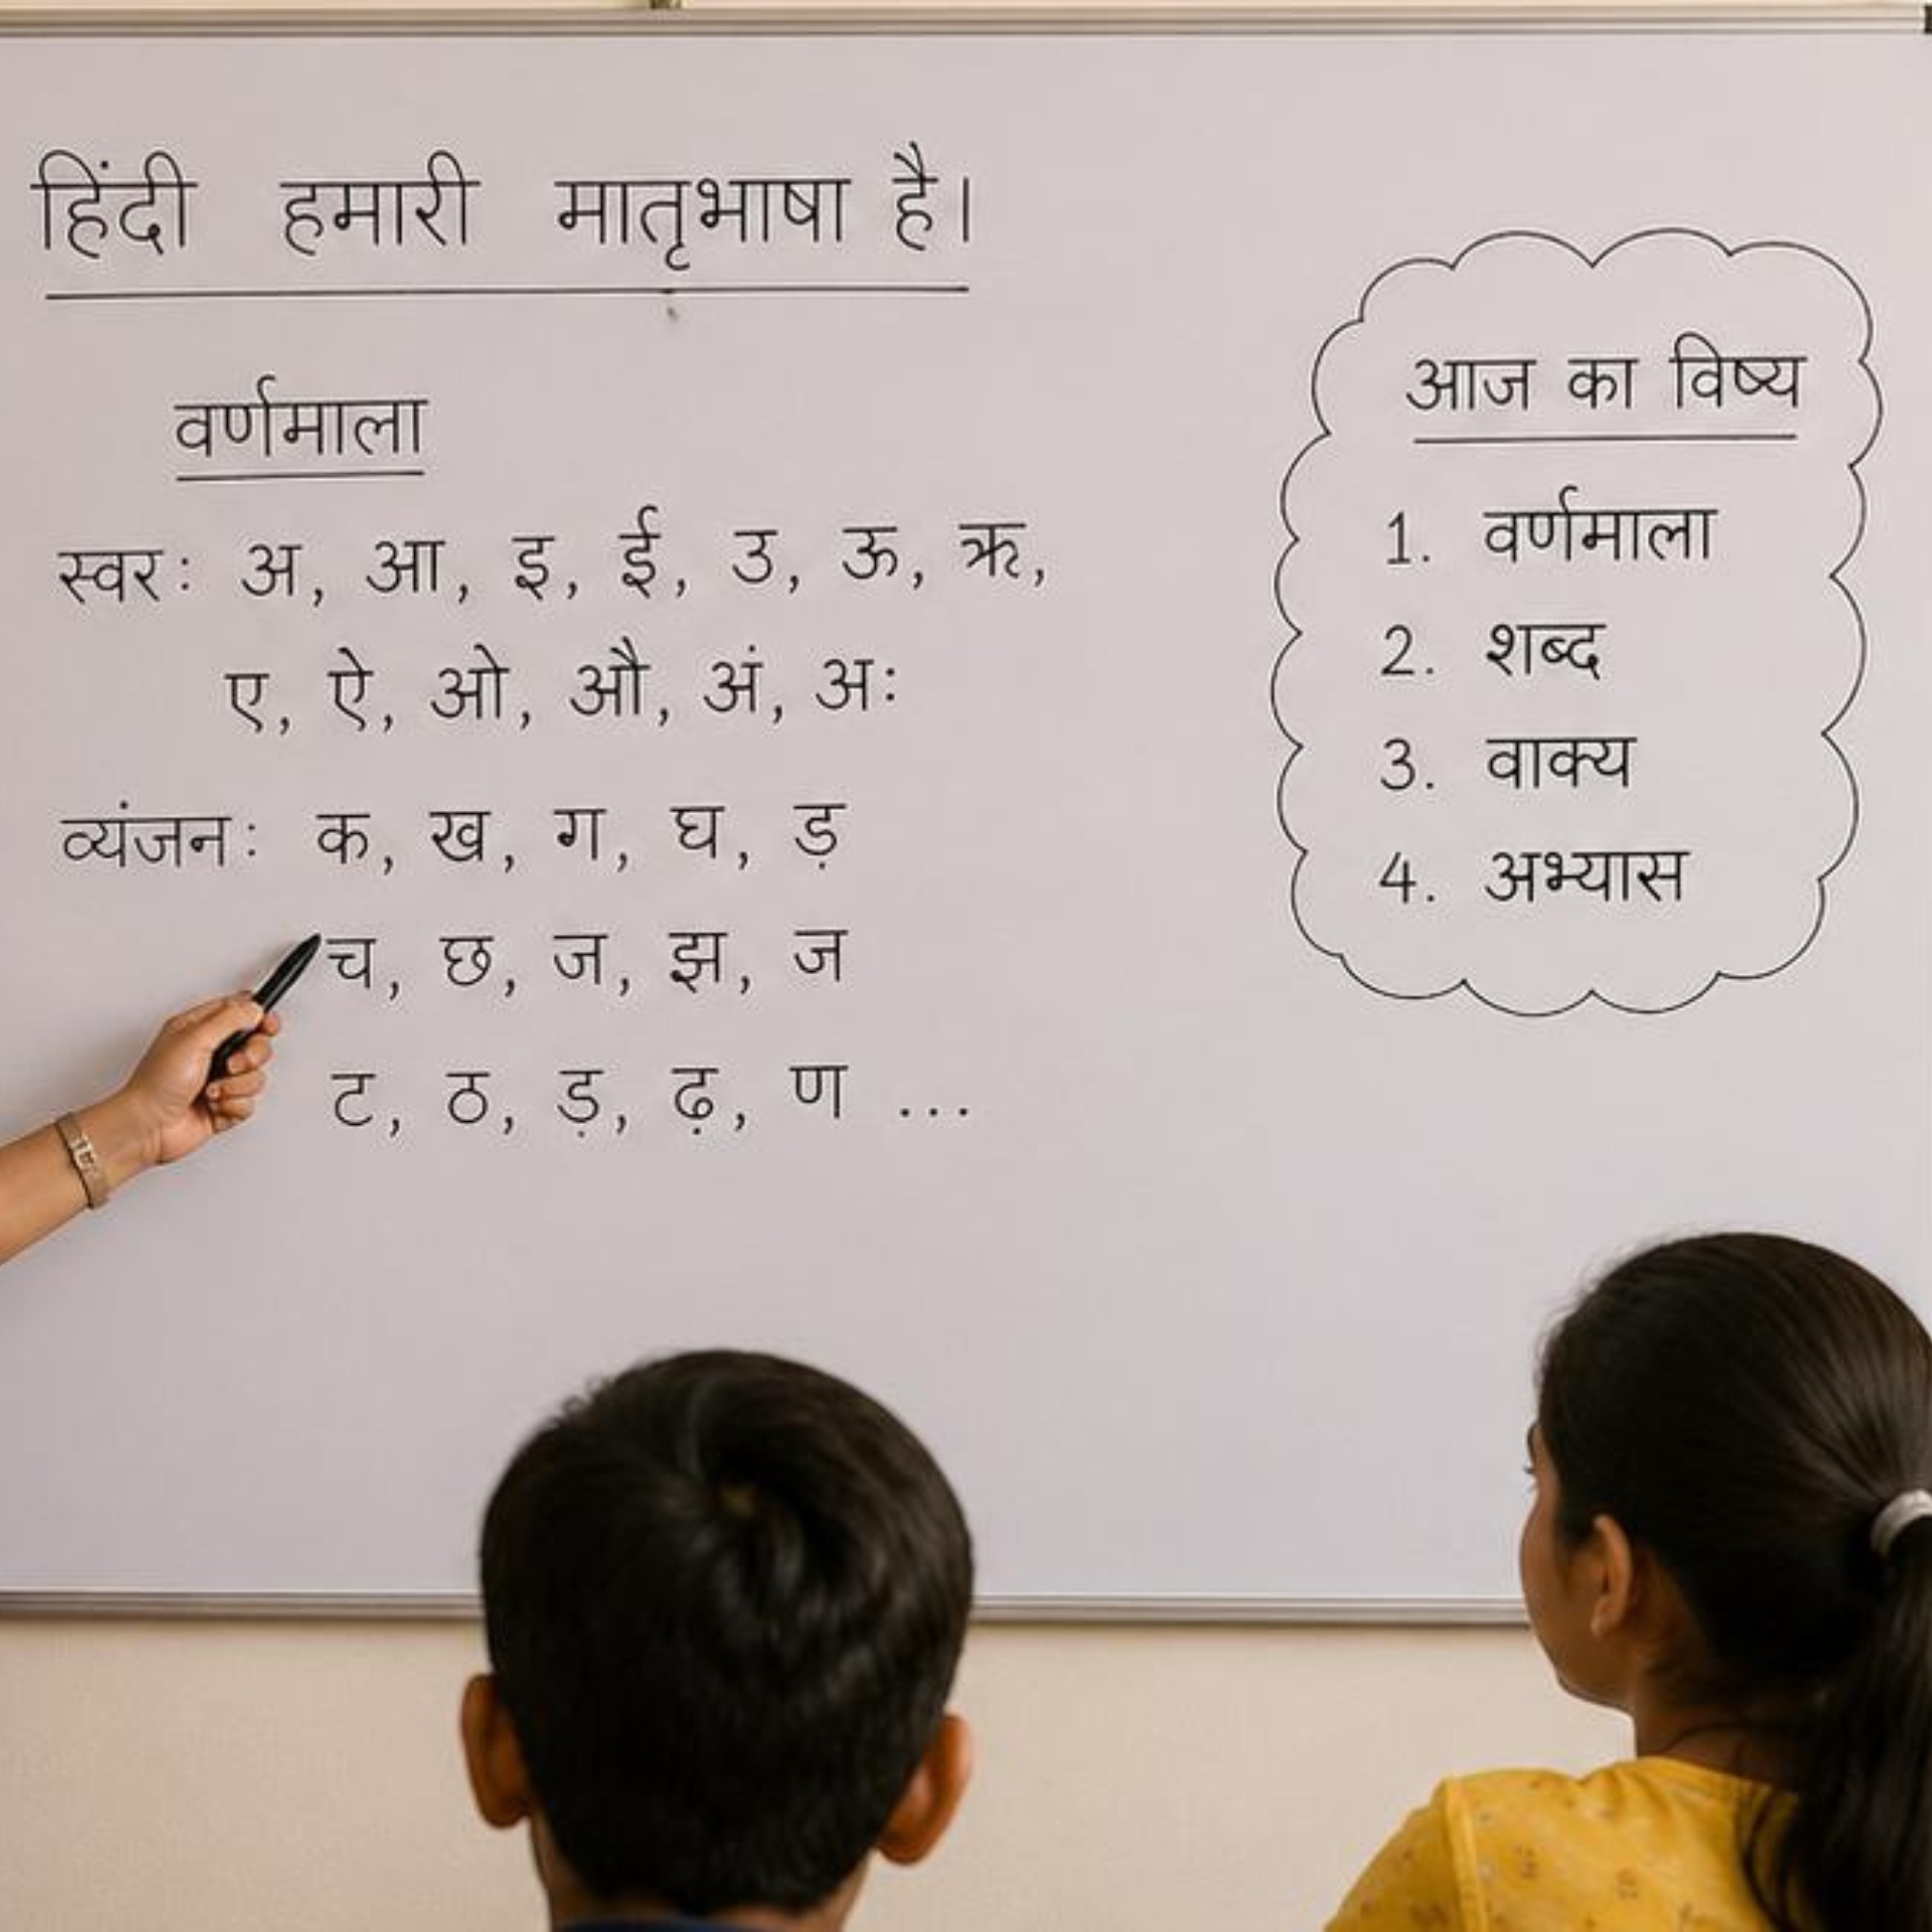 हिंदी हमारी मातृभाषा है।
वर्णमाला
स्वरः अ, आ, इ, ई, उ, ऊ, ऋ,
ए, ऐ, ओ, औ, अं, अः
व्यंजनः क, ख, ग, घ, ड़
च, छ, ज, झ, ज
ट, ठ, ड़, ढ़, ण ...
आज का विष्य
1. वर्णमाला
2. शब्द
3. वाक्य
4. अभ्यास